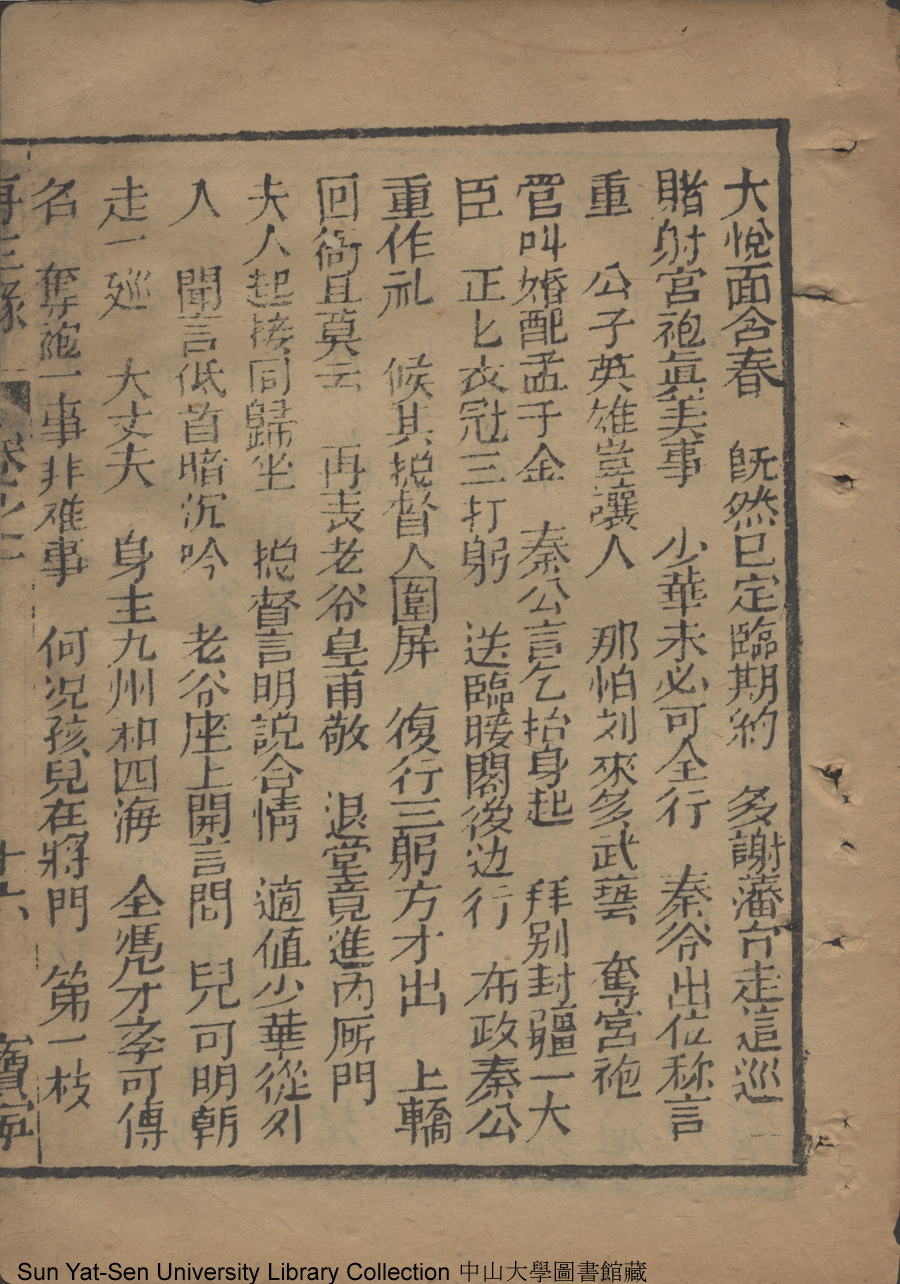 大悅面含春　既然已定臨期約　多謝藩台走這巡
賭射宮袍眞美事　少華未必可全行　秦爷出位称言
重　公子英雄豈讓人　那怕刘來多武藝　奪宮袍
官叫婚配孟千金　秦公言乞抬身起　拜别封疆一大
臣　正匕衣冠三打躬　送臨暖閣後边行　布政秦公
重作礼　候其捴督人圍屏　復行三躬方才出　上轎
回衙且莫云　再表老爷皇甫敬　退堂竟進内厢門
夫人起接同歸坐　捴督言明說合情　適值少華從外
入　聞言低首暗沉吟　老爷座上開言問　兒可明朝
走一廵　大丈夫　身主九州和四海　全凴才孝可傳
名　奪袍一事非难事　何况孩兒在將門　第一枝
再生緣　卷之二　十六　寶寧
Sun Yat-Sen University Library Collection 中山大學圖書館藏